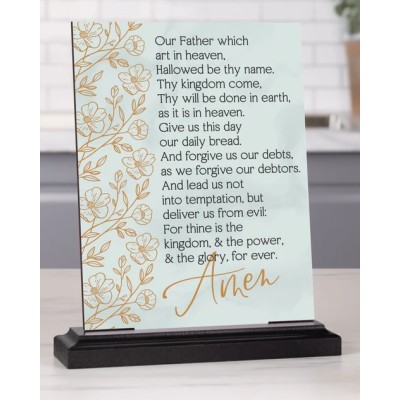 Our Father which
art in heaven,
Hallowed be thy name.
Thy kingdom come,
Thy will be done in earth,
as it is in heaven.
Give us this day
our daily bread.
And forgive us our debts,
as we forgive our debtors.
And lead us not
into temptation, but
deliver us from evil:
For thine is the
kingdom, & the power,
& the glory, for ever.
Amen